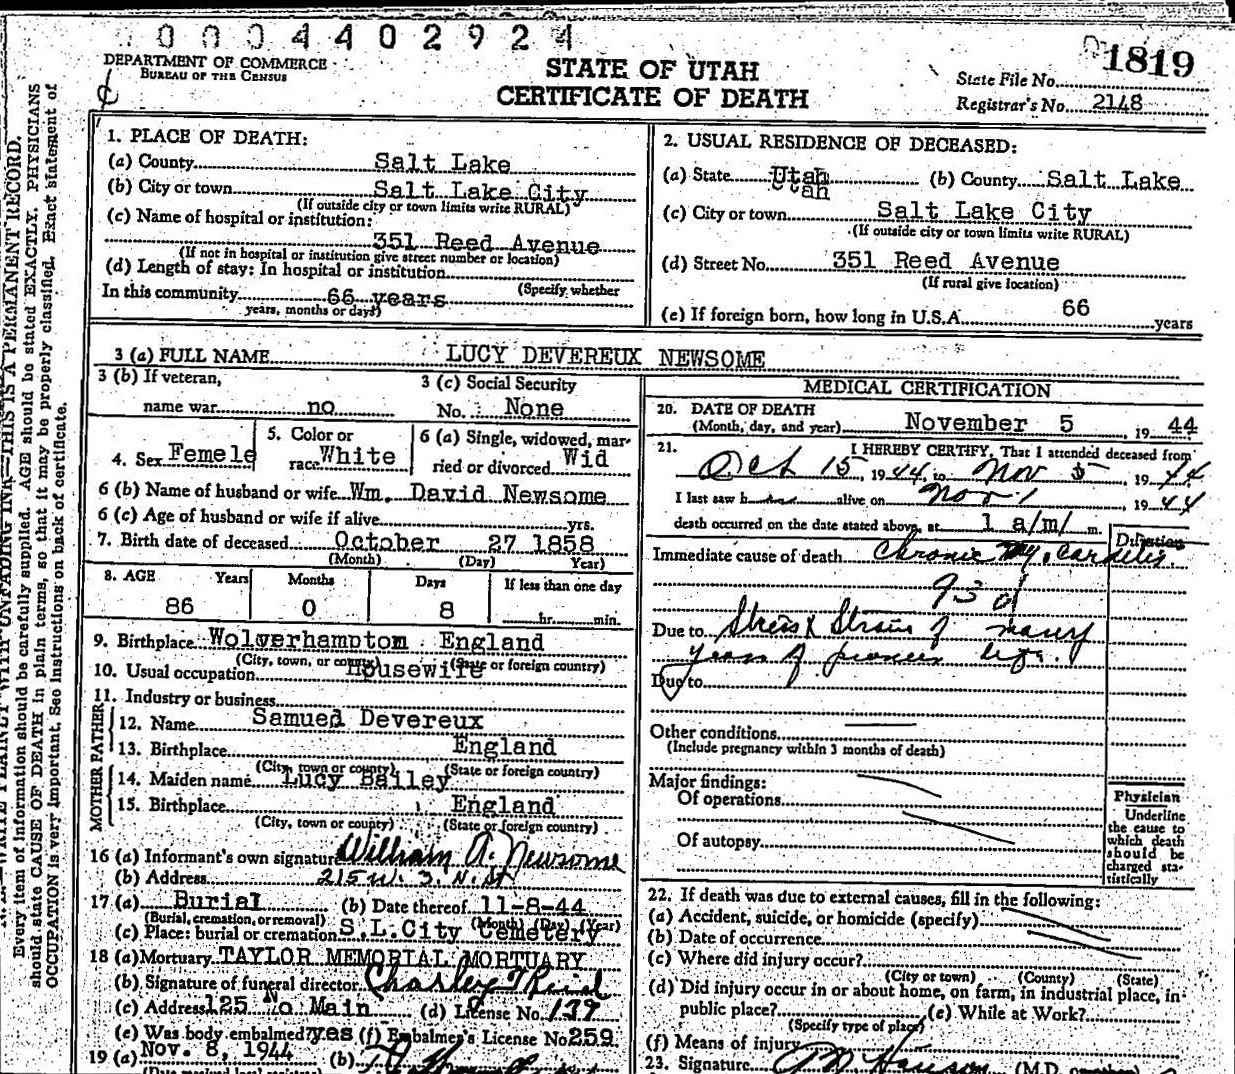 0004402924
DEPARTMENT OF COMMERCE
BUREAU OF THE CENSUS
STATE OF UTAH
CERTIFICATE OF DEATH
1819
State File No.
Registrar's No. 2148
Every item of information should be carefully supplied. AGE should be stated EXACTLY. PHYSICIANS
should state CAUSE OF DEATH in plain terms, so that it may be properly classified. Exact statement of
OCCUPATION is very important. See instructions on back of certificate.
1. PLACE OF DEATH:
(a) County Salt Lake
(b) City or town Salt Lake City
(If outside city or town limits write RURAL)
(c) Name of hospital or institution:
351 Reed Avenue
(If not in hospital or institution give street number or location)
(d) Length of stay: In hospital or institution
(Specify whether
In this community 66 years
years, months or days)
2. USUAL RESIDENCE OF DECEASED:
(a) State Utah (b) County Salt Lake
Utah
(c) City or town Salt Lake City
(If outside city or town limits write RURAL)
(d) Street No. 351 Reed Avenue
(If rural give location)
(e) If foreign born, how long in U.S.A. 66 years
3 (a) FULL NAME LUCY DEVEREUX NEWSOME
3 (b) If veteran,
name war no
3 (c) Social Security
No. None
4. Sex Femele
5. Color or
race White
6 (a) Single, widowed, mar-
ried or divorced Wid
6 (b) Name of husband or wife Wm. David Newsome
6 (c) Age of husband or wife if alive yrs.
7. Birth date of deceased October 27 1858
(Month) (Day) Year)
8. AGE Years Months Days If less than one day
86 0 8 hr. min.
9. Birthplace Wolverhampton England
(City, town, or county) (State or foreign country)
10. Usual occupation Housewife
11. Industry or business
FATHER
12. Name Samued Devereux
13. Birthplace England
(City, town or county) (State or foreign country)
MOTHER
14. Maiden name Lucy Bailey
15. Birthplace England
(City, town or county) (State or foreign country)
16 (a) Informant's own signature William A. Newsome
(b) Address 215 W. 3. N. St
17 (a) Burial (b) Date thereof 11-8-44
(Burial, cremation, or removal) (Month) (Day) (Year)
(c) Place: burial or cremation S.L.City Cemetery
18 (a) Mortuary TAYLOR MEMORIAL MORTUARY
(b) Signature of funeral director Charley
(c) Address 125 No Main (d) License No. 139
(e) Was body embalmed? yes (f) Embalmer's License No. 259
19 (a) Nov. 8, 1944 (b)
MEDICAL CERTIFICATION
20. DATE OF DEATH
(Month, day, and year) November 5 19 44
21. I HEREBY CERTIFY, That I attended deceased from
Oct 15, 19 44, to Nov 5 19 44
I last saw h alive on Nov 1 19 44
death occurred on the date stated above, at 1 a/m/ m.
Duration
Immediate cause of death Chronic Myocarditis.
93d
Due to Stress & Strain of many
years of pioneer life.
Due to
Other conditions
(Include pregnancy within 3 months of death)
Major findings:
Of operations
Of autopsy
Physician
Underline
the cause to
which death
should be
charged sta-
tistically
22. If death was due to external causes, fill in the following:
(a) Accident, suicide, or homicide (specify)
(b) Date of occurrence
(c) Where did injury occur?
(City or town) (County) (State)
(d) Did injury occur in or about home, on farm, in industrial place, in
public place? (e) While at Work?
(Specify type of place)
(f) Means of injury
23. Signature